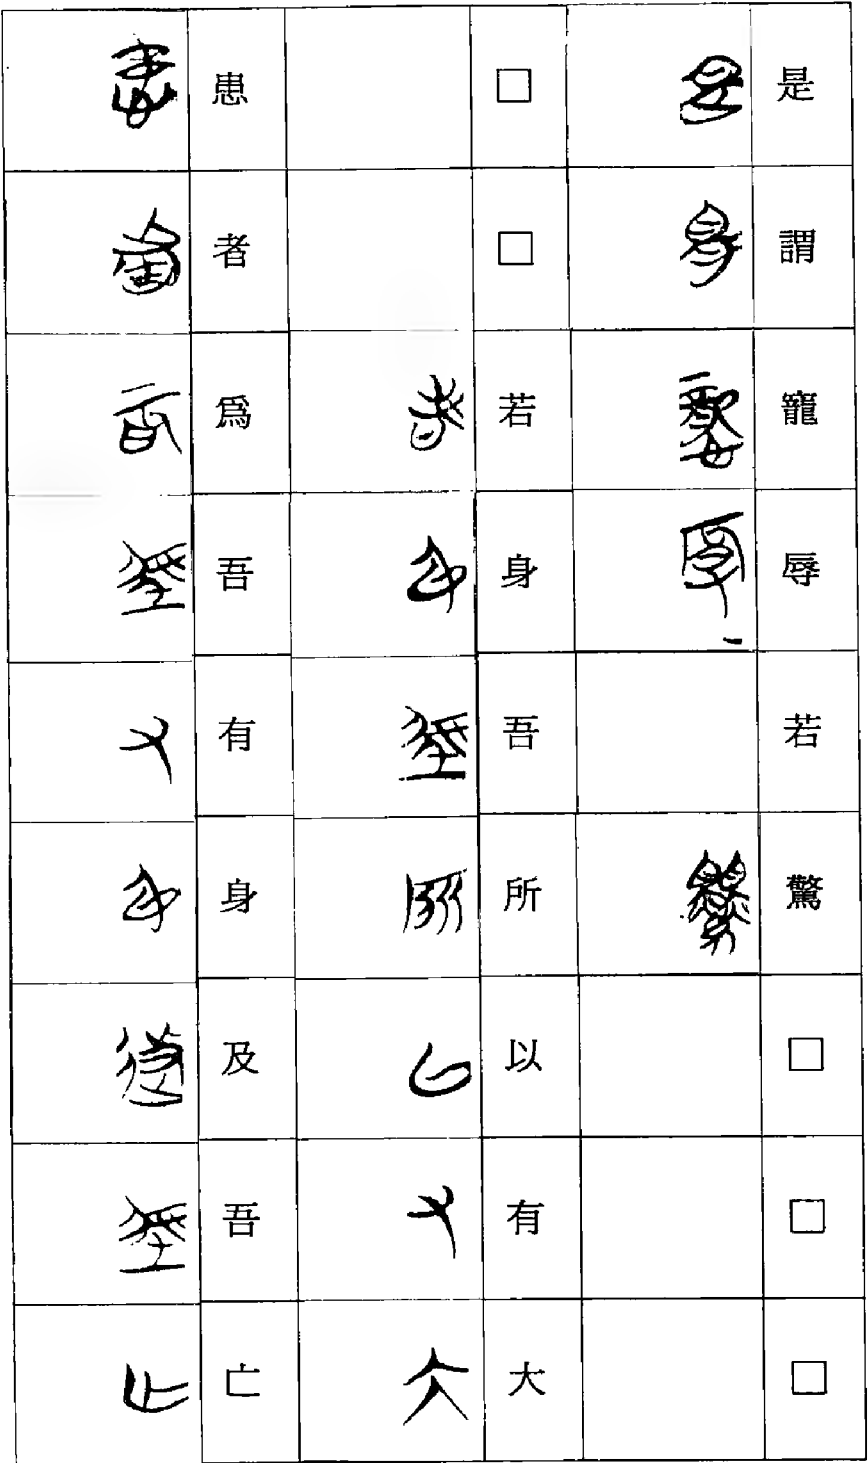 是謂寵辱若驚□□□
□□若身吾所以有大
患者爲吾有身及吾亡